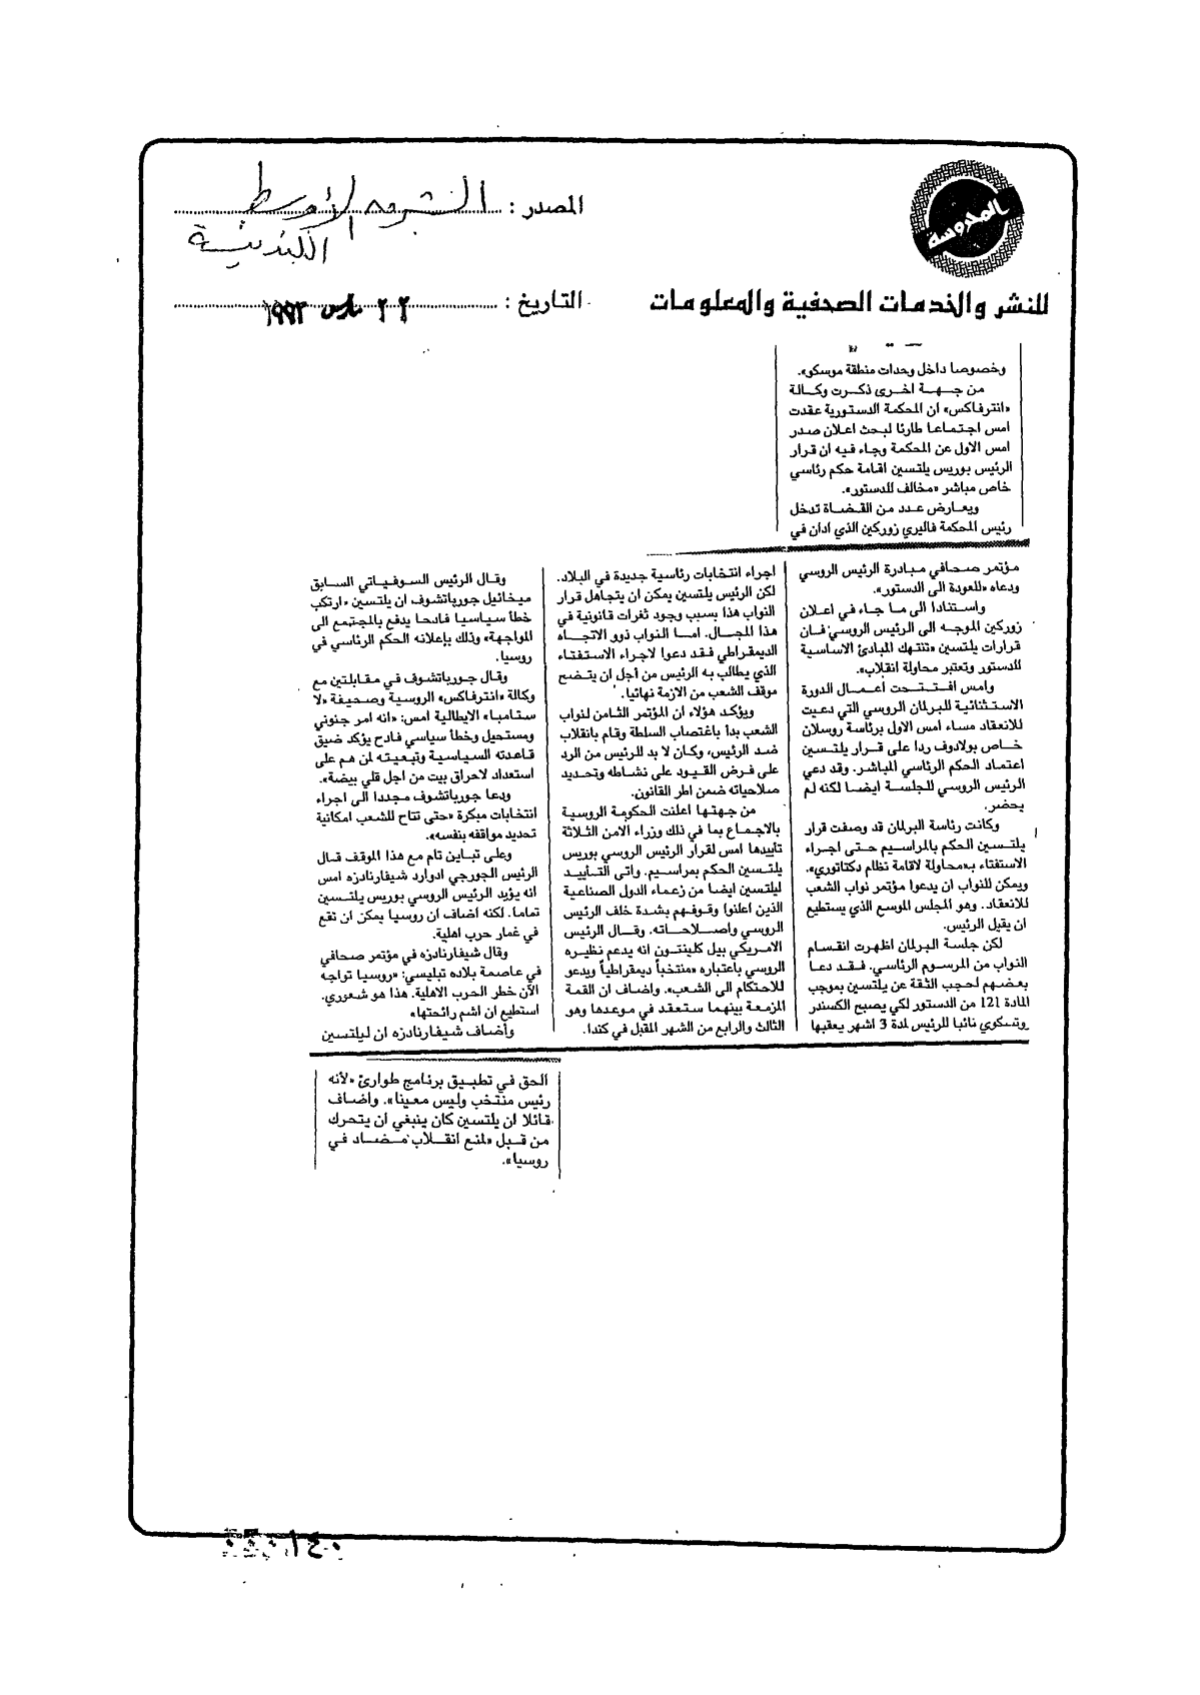 المحروسة
المصدر : الشرق الأوسط
اللندنية
للنشر والخدمات الصحفية والمعلومات
التاريخ : ٢٢ مارس ١٩٩٣
وخصوصا داخل وحدات منطقة موسكو».
من جهة اخرى ذكرت وكالة
«انترفاكس» ان المحكمة الدستورية عقدت
امس اجتماعا طارئا لبحث اعلان صدر
امس الاول عن المحكمة وجاء فيه ان قرار
الرئيس بوريس يلتسين اقامة حكم رئاسي
خاص مباشر «مخالف للدستور».
ويعارض عدد من القضاة تدخل
رئيس المحكمة فاليري زوركين الذي ادان في
مؤتمر صحافي مبادرة الرئيس الروسي
ودعاه «للعودة الى الدستور».
واستنادا الى ما جاء في اعلان
زوركين الموجه الى الرئيس الروسي فان
قرارات يلتسين «تنتهك المبادئ الاساسية
للدستور وتعتبر محاولة انقلاب».
وامس افتتحت أعمال الدورة
الاستثنائية للبرلمان الروسي التي دعيت
للانعقاد مساء امس الاول برئاسة روسلان
خاص بولادوف ردا على قرار يلتسين
اعتماد الحكم الرئاسي المباشر. وقد دعي
الرئيس الروسي للجلسة ايضا لكنه لم
يحضر.
وكانت رئاسة البرلمان قد وصفت قرار
يلتسين الحكم بالمراسيم حتى اجراء
الاستفتاء بـ«محاولة لاقامة نظام دكتاتوري».
ويمكن للنواب ان يدعوا مؤتمر نواب الشعب
للانعقاد. وهو المجلس الموسع الذي يستطيع
ان يقيل الرئيس.
لكن جلسة البرلمان اظهرت انقسام
النواب من المرسوم الرئاسي. فقد دعا
بعضهم لحجب الثقة عن يلتسين بموجب
المادة 121 من الدستور لكي يصبح الكسندر
وتسكوي نائبا للرئيس لمدة 3 اشهر يعقبها
اجراء انتخابات رئاسية جديدة في البلاد.
لكن الرئيس يلتسين يمكن ان يتجاهل قرار
النواب هذا بسبب وجود ثغرات قانونية في
هذا المجال. اما النواب ذوو الاتجاه
الديمقراطي فقد دعوا لاجراء الاستفتاء
الذي يطالب به الرئيس من اجل ان يتضح
موقف الشعب من الازمة نهائيا.
ويؤكد هؤلاء ان المؤتمر الثامن لنواب
الشعب بدأ باغتصاب السلطة وقام بانقلاب
ضد الرئيس، وكان لا بد للرئيس من الرد
على فرض القيود على نشاطه وتحديد
صلاحياته ضمن اطر القانون.
من جهتها اعلنت الحكومة الروسية
بالاجماع بما في ذلك وزراء الامن الثلاثة
تأييدها امس لقرار الرئيس الروسي بوريس
يلتسين الحكم بمراسيم. واتى التأييد
ليلتسين ايضا من زعماء الدول الصناعية
الذين اعلنوا وقوفهم بشدة خلف الرئيس
الروسي واصلاحاته. وقال الرئيس
الامريكي بيل كلينتون انه يدعم نظيره
الروسي باعتباره «منتخباً ديمقراطياً ويدعو
للاحتكام الى الشعب». واضاف ان القمة
المزمعة بينهما ستعقد في موعدها وهو
الثالث والرابع من الشهر المقبل في كندا.
وقال الرئيس السوفياتي السابق
ميخائيل جورباتشوف ان يلتسين «ارتكب
خطأ سياسيا فادحا يدفع بالمجتمع الى
المواجهة» وذلك بإعلانه الحكم الرئاسي في
روسيا.
وقال جورباتشوف في مقابلتين مع
وكالة «انترفاكس» الروسية وصحيفة «لا
ستامبا» الايطالية امس: «انه امر جنوني
ومستحيل وخطأ سياسي فادح يؤكد ضيق
قاعدته السياسية وتبعيته لمن هم على
استعداد لاحراق بيت من اجل قلي بيضة».
ودعا جورباتشوف مجددا الى اجراء
انتخابات مبكرة «حتى تتاح للشعب امكانية
تحديد مواقفه بنفسه».
وعلى تباين تام مع هذا الموقف قال
الرئيس الجورجي ادوارد شيفارنادزه امس
انه يؤيد الرئيس الروسي بوريس يلتسين
تماما. لكنه اضاف ان روسيا يمكن ان تقع
في غمار حرب اهلية.
وقال شيفارنادزه في مؤتمر صحافي
في عاصمة بلاده تبليسي: «روسيا تواجه
الآن خطر الحرب الاهلية. هذا هو شعوري.
استطيع ان اشم رائحتها»
وأضاف شيفارنادزه ان ليلتسين
الحق في تطبيق برنامج طوارئ «لأنه
رئيس منتخب وليس معينا». واضاف
قائلا ان يلتسين كان ينبغي ان يتحرك
من قبل «لمنع انقلاب مضاد في
روسيا».